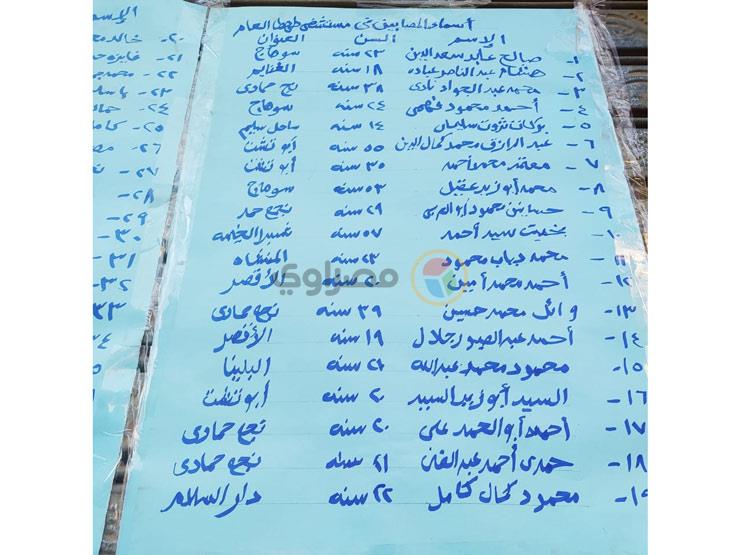 أسماء المصابين في مستشفى طهطا العام
الاسم السن العنوان
١- صالح عابد سعد الدين ٢٣ سنه سوهاج
٢- هشام عبد الناصر عباده ١٨ سنه الغنايم
٣- محمد عبد الجواد نادى ٣٨ سنه نجع حمادى
٤- أحمد محمود فهمى ٢٤ سنه سوهاج
٥- ثروت سليمان ١٤ سنه ساحل سليم
٦- عبد الرازق محمد كمال الدين ٥٥ سنه أبو تشت
٧- معتمد محمد أحمد ٣٥ سنه أبو تشت
٨- محمد أبو زيد عقيل ٥٣ سنه سوهاج
٩- محمود أبو العربى ٢٩ سنه نجع حمد
١٠- بخيت سيد أحمد ٥٧ سنه شبرا الخيمه
١١- محمد دياب محمود ٢٣ سنه المنشاه
١٢- أحمد محمد أمين سنه الأقصر
١٣- وائل محمد حسين ٣٩ سنه نجع حمادى
١٤- أحمد عبد الصبور جلال ١٩ سنه الأقصر
١٥- محمود محمد عبدالله ٢١ سنه البلينا
١٦- السيد أبو زيد السيد ٢٠ سنه أبو تشت
١٧- أحمد أبو الحمد على ٢٠ سنه نجع حمادى
١٨- حمدى أحمد عبد الغنى ٢١ سنه نجع حمادى
١٩- محمود كمال كامل ٢٢ سنه دار السلام
الإسم
٢٠- خالد
٢١- فايزه
٢٢- محمد
٢٣-
٢٤-
٢٥-
٢٦-
٢٧-
٢٨-
٢٩-
٣٠-
٣١-
٣٢-
٣٣
مصراوي